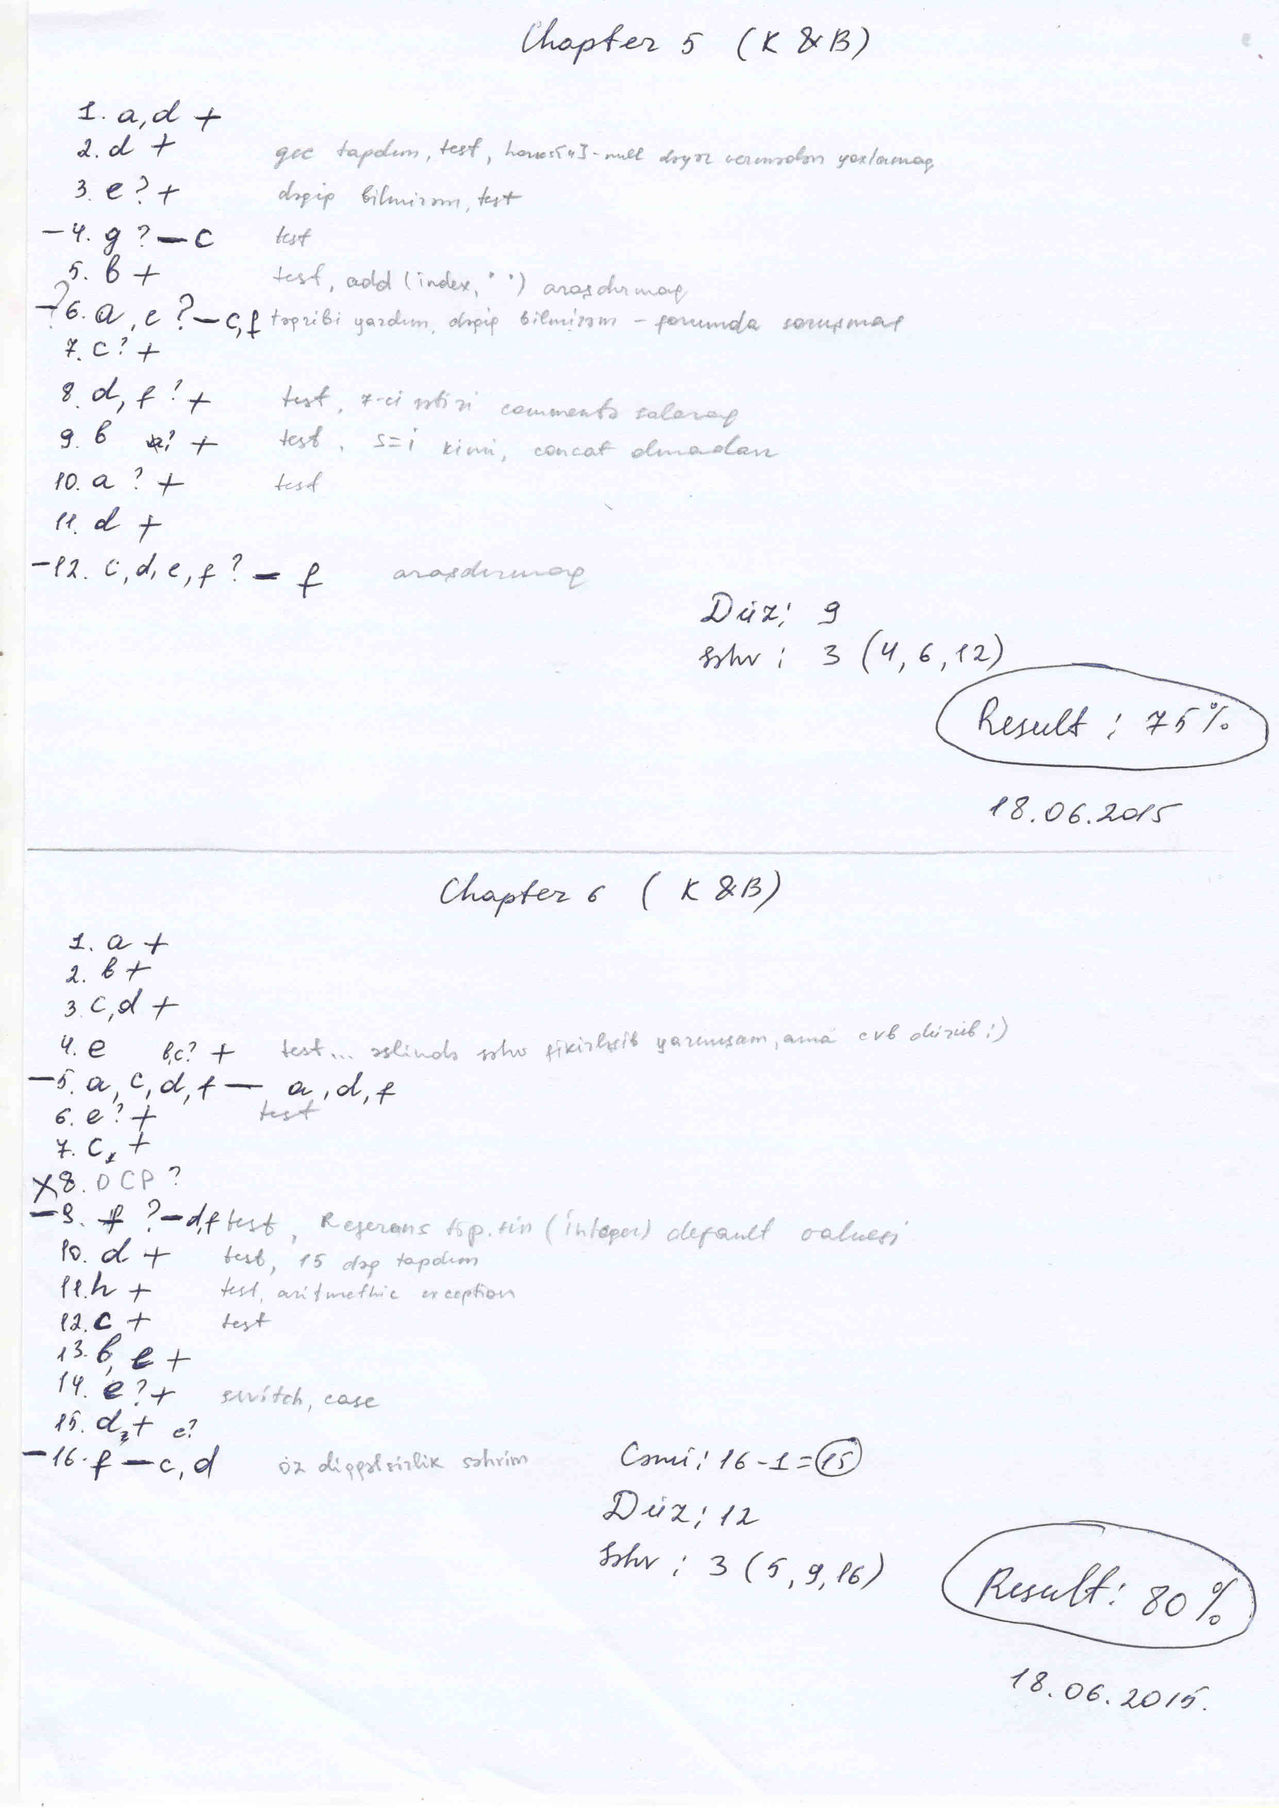 Chapter 5 (K & B)
1. a, d +
2. d + gec tapdım, test, null dəyər vermədən yoxlamaq
3. e ? + dəqiq bilmirəm, test
- 4. g ? — c test
5. b + test, add (index, " ") araşdırmaq
-? 6. a, e ? — c, f təqribi yazdım, dəqiq bilmirəm - forumda soruşmaq
7. c ? +
8. d, f ? + test, 7-ci sətiri commentə salaraq
9. b a? + test, s=i kimi, concat olmadan
10. a ? + test
11. d +
- 12. c, d, e, f ? — f araşdırmaq
Düz: 9
Səhv: 3 (4, 6, 12)
Result: 75%
18.06.2015
Chapter 6 (K & B)
1. a +
2. b +
3. c, d +
4. e b,c? + test... əslində səhv fikirləşib yazmışam, ama cvb düzüb :)
- 5. a, c, d, f — a, d, f
6. e ? + test
7. c +
X 8. OCP ?
- 9. f ? — d, f test, Referans tip.nin (Integer) default valuesi
10. d + test, 15 dəq tapdım
11. h + test, aritmethic exception
12. c + test
13. b, e +
14. e ? + switch, case
15. d + c?
- 16. f — c, d öz diqqətsizlik səhvim
Cəmi: 16 - 1 = 15
Düz: 12
Səhv: 3 (5, 9, 16)
Result: 80%
18.06.2015.